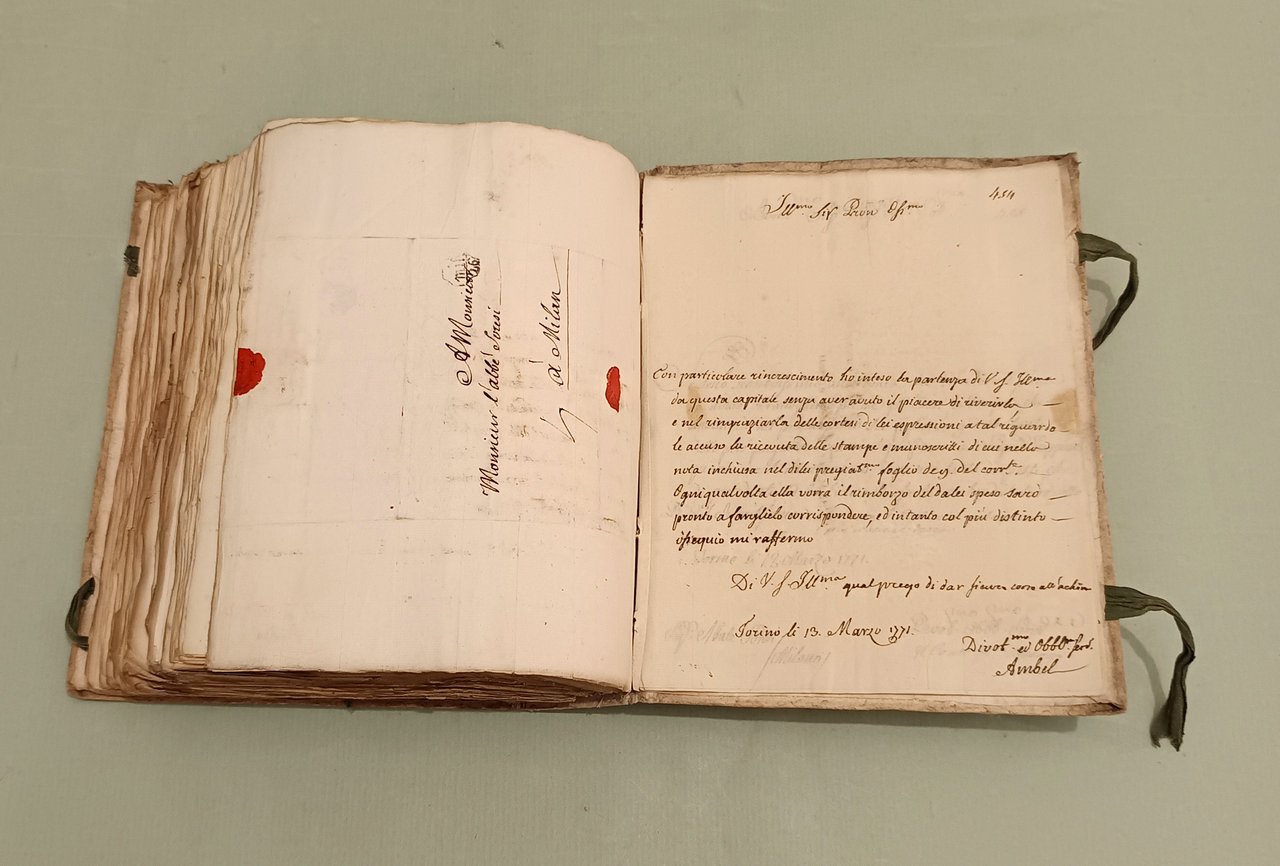 A Monsieur
Monsieur l'abbé Soresi
à Milan
454
Ill.mo Sig.r Pron Oss.mo
Con particolare rincrescimento ho inteso la partenza di V. S. Ill.ma
da questa capitale senza aver avuto il piacere di riverirla,
e nel ringraziarla delle cortesi di lei espressioni a tal riguardo
le accuso la ricevuta delle stampe e manoscritti di cui nella
nota inchiusa nel di lei pregiat.mo foglio de 9. del corr.te.
Ogni qual volta ella vorrà il rimborzo del da lei speso sarò
pronto a farglielo corrispondere, ed intanto col più distinto
ossequio mi raffermo
Di V. S. Ill.ma qual prego di dar sicuro corso all'
Torino li 13. Marzo 1771.
Divot.mo ed Obbl.o serv.
Ambel